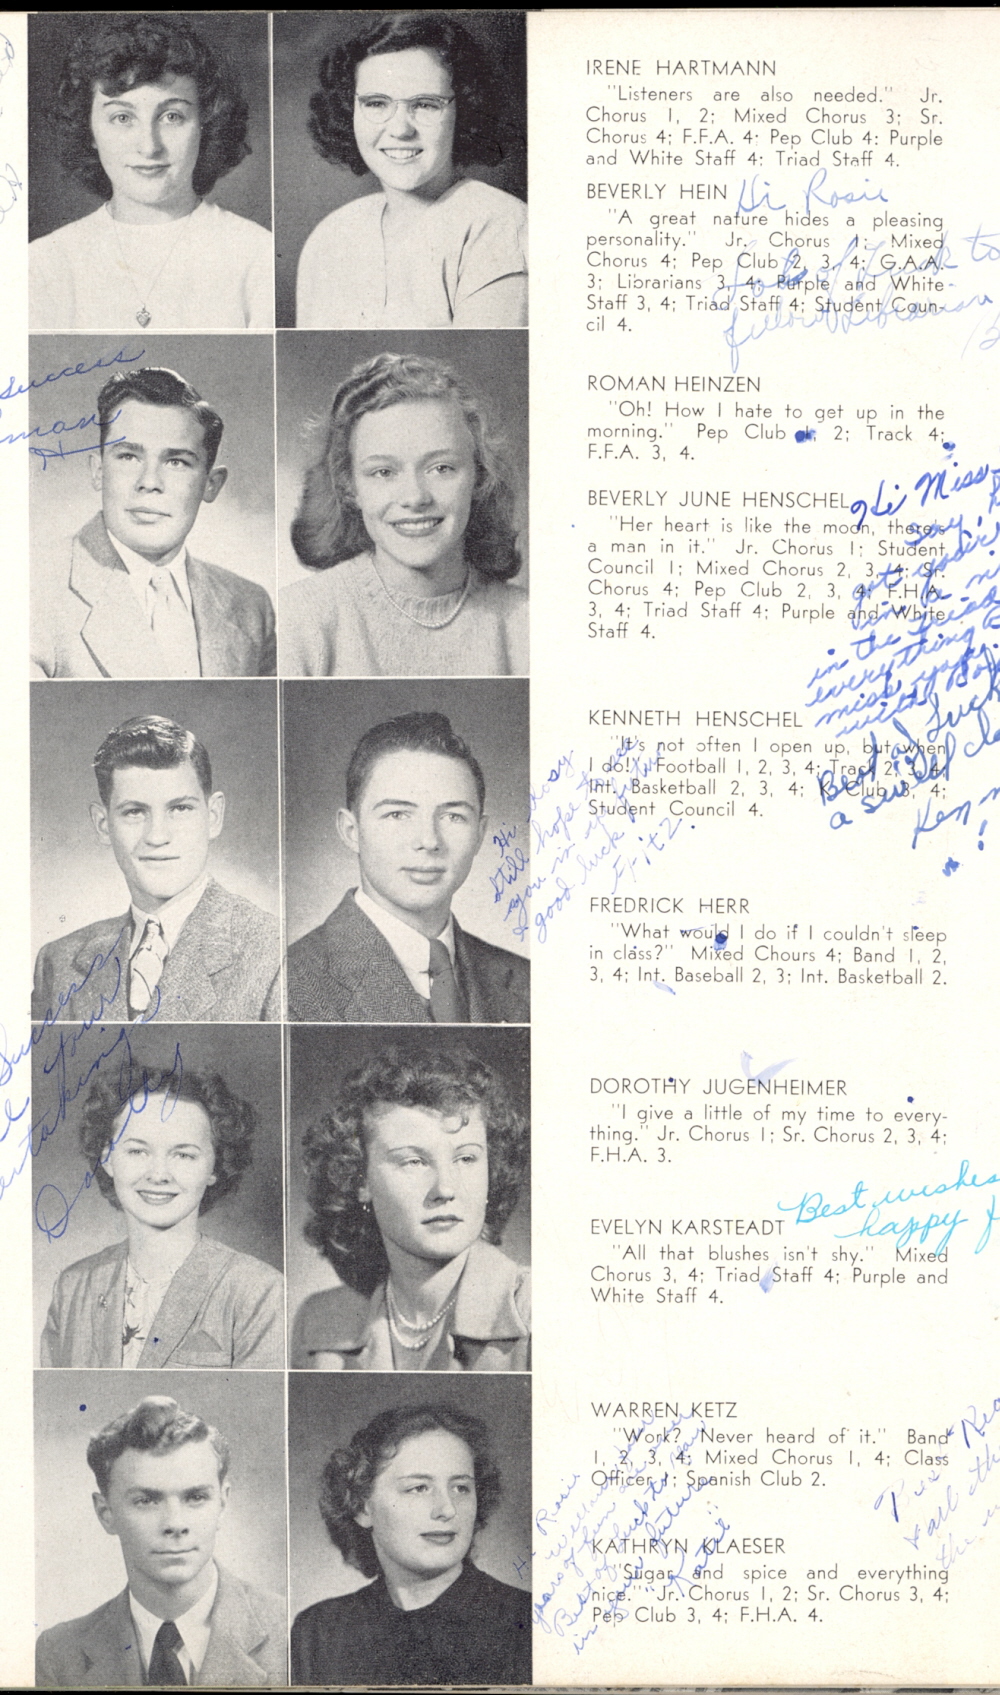 IRENE HARTMANN
"Listeners are also needed." Jr.
Chorus 1, 2; Mixed Chorus 3; Sr.
Chorus 4; F.F.A. 4; Pep Club 4; Purple
and White Staff 4; Triad Staff 4.
BEVERLY HEIN
Hi Rosie
"A great nature hides a pleasing
personality." Jr. Chorus 1; Mixed
Chorus 4; Pep Club 2, 3, 4; G.A.A.
3; Librarians 3, 4; Purple and White
Staff 3, 4; Triad Staff 4; Student Coun-
cil 4.
Lots of luck to
fellow Librarian
success
H
ROMAN HEINZEN
"Oh! How I hate to get up in the
morning." Pep Club 1, 2; Track 4;
F.F.A. 3, 4.
BEVERLY JUNE HENSCHEL
"Her heart is like the moon, there's
a man in it." Jr. Chorus 1; Student
Council 1; Mixed Chorus 2, 3, 4; Sr.
Chorus 4; Pep Club 2, 3, 4; F.H.A.
3, 4; Triad Staff 4; Purple and White
Staff 4.
Hi Miss
say,
get your
in the
everything
miss
with
Best of luck
a swell
Ken
!
KENNETH HENSCHEL
"It's not often I open up, but when
I do!" Football 1, 2, 3, 4; Track 2, 3, 4;
Int. Basketball 2, 3, 4; K Club 3, 4;
Student Council 4.
Hi Rosy
Still hope to see
you in your future
& good luck
Fritz.
FREDRICK HERR
"What would I do if I couldn't sleep
in class?" Mixed Chours 4; Band 1, 2,
3, 4; Int. Baseball 2, 3; Int. Basketball 2.
Success
Your
Dorothy
DOROTHY JUGENHEIMER
"I give a little of my time to every-
thing." Jr. Chorus 1; Sr. Chorus 2, 3, 4;
F.H.A. 3.
Best wishes
happy
EVELYN KARSTEADT
"All that blushes isn't shy." Mixed
Chorus 3, 4; Triad Staff 4; Purple and
White Staff 4.
WARREN KETZ
"Work? Never heard of it." Band
1, 2, 3, 4; Mixed Chorus 1, 4; Class
Officer 1; Spanish Club 2.
& all the
the
Hi Rosie
years of fun
Best of luck to you
in your future
Katie
KATHRYN KLAESER
"Sugar and spice and everything
nice." Jr. Chorus 1, 2; Sr. Chorus 3, 4;
Pep Club 3, 4; F.H.A. 4.